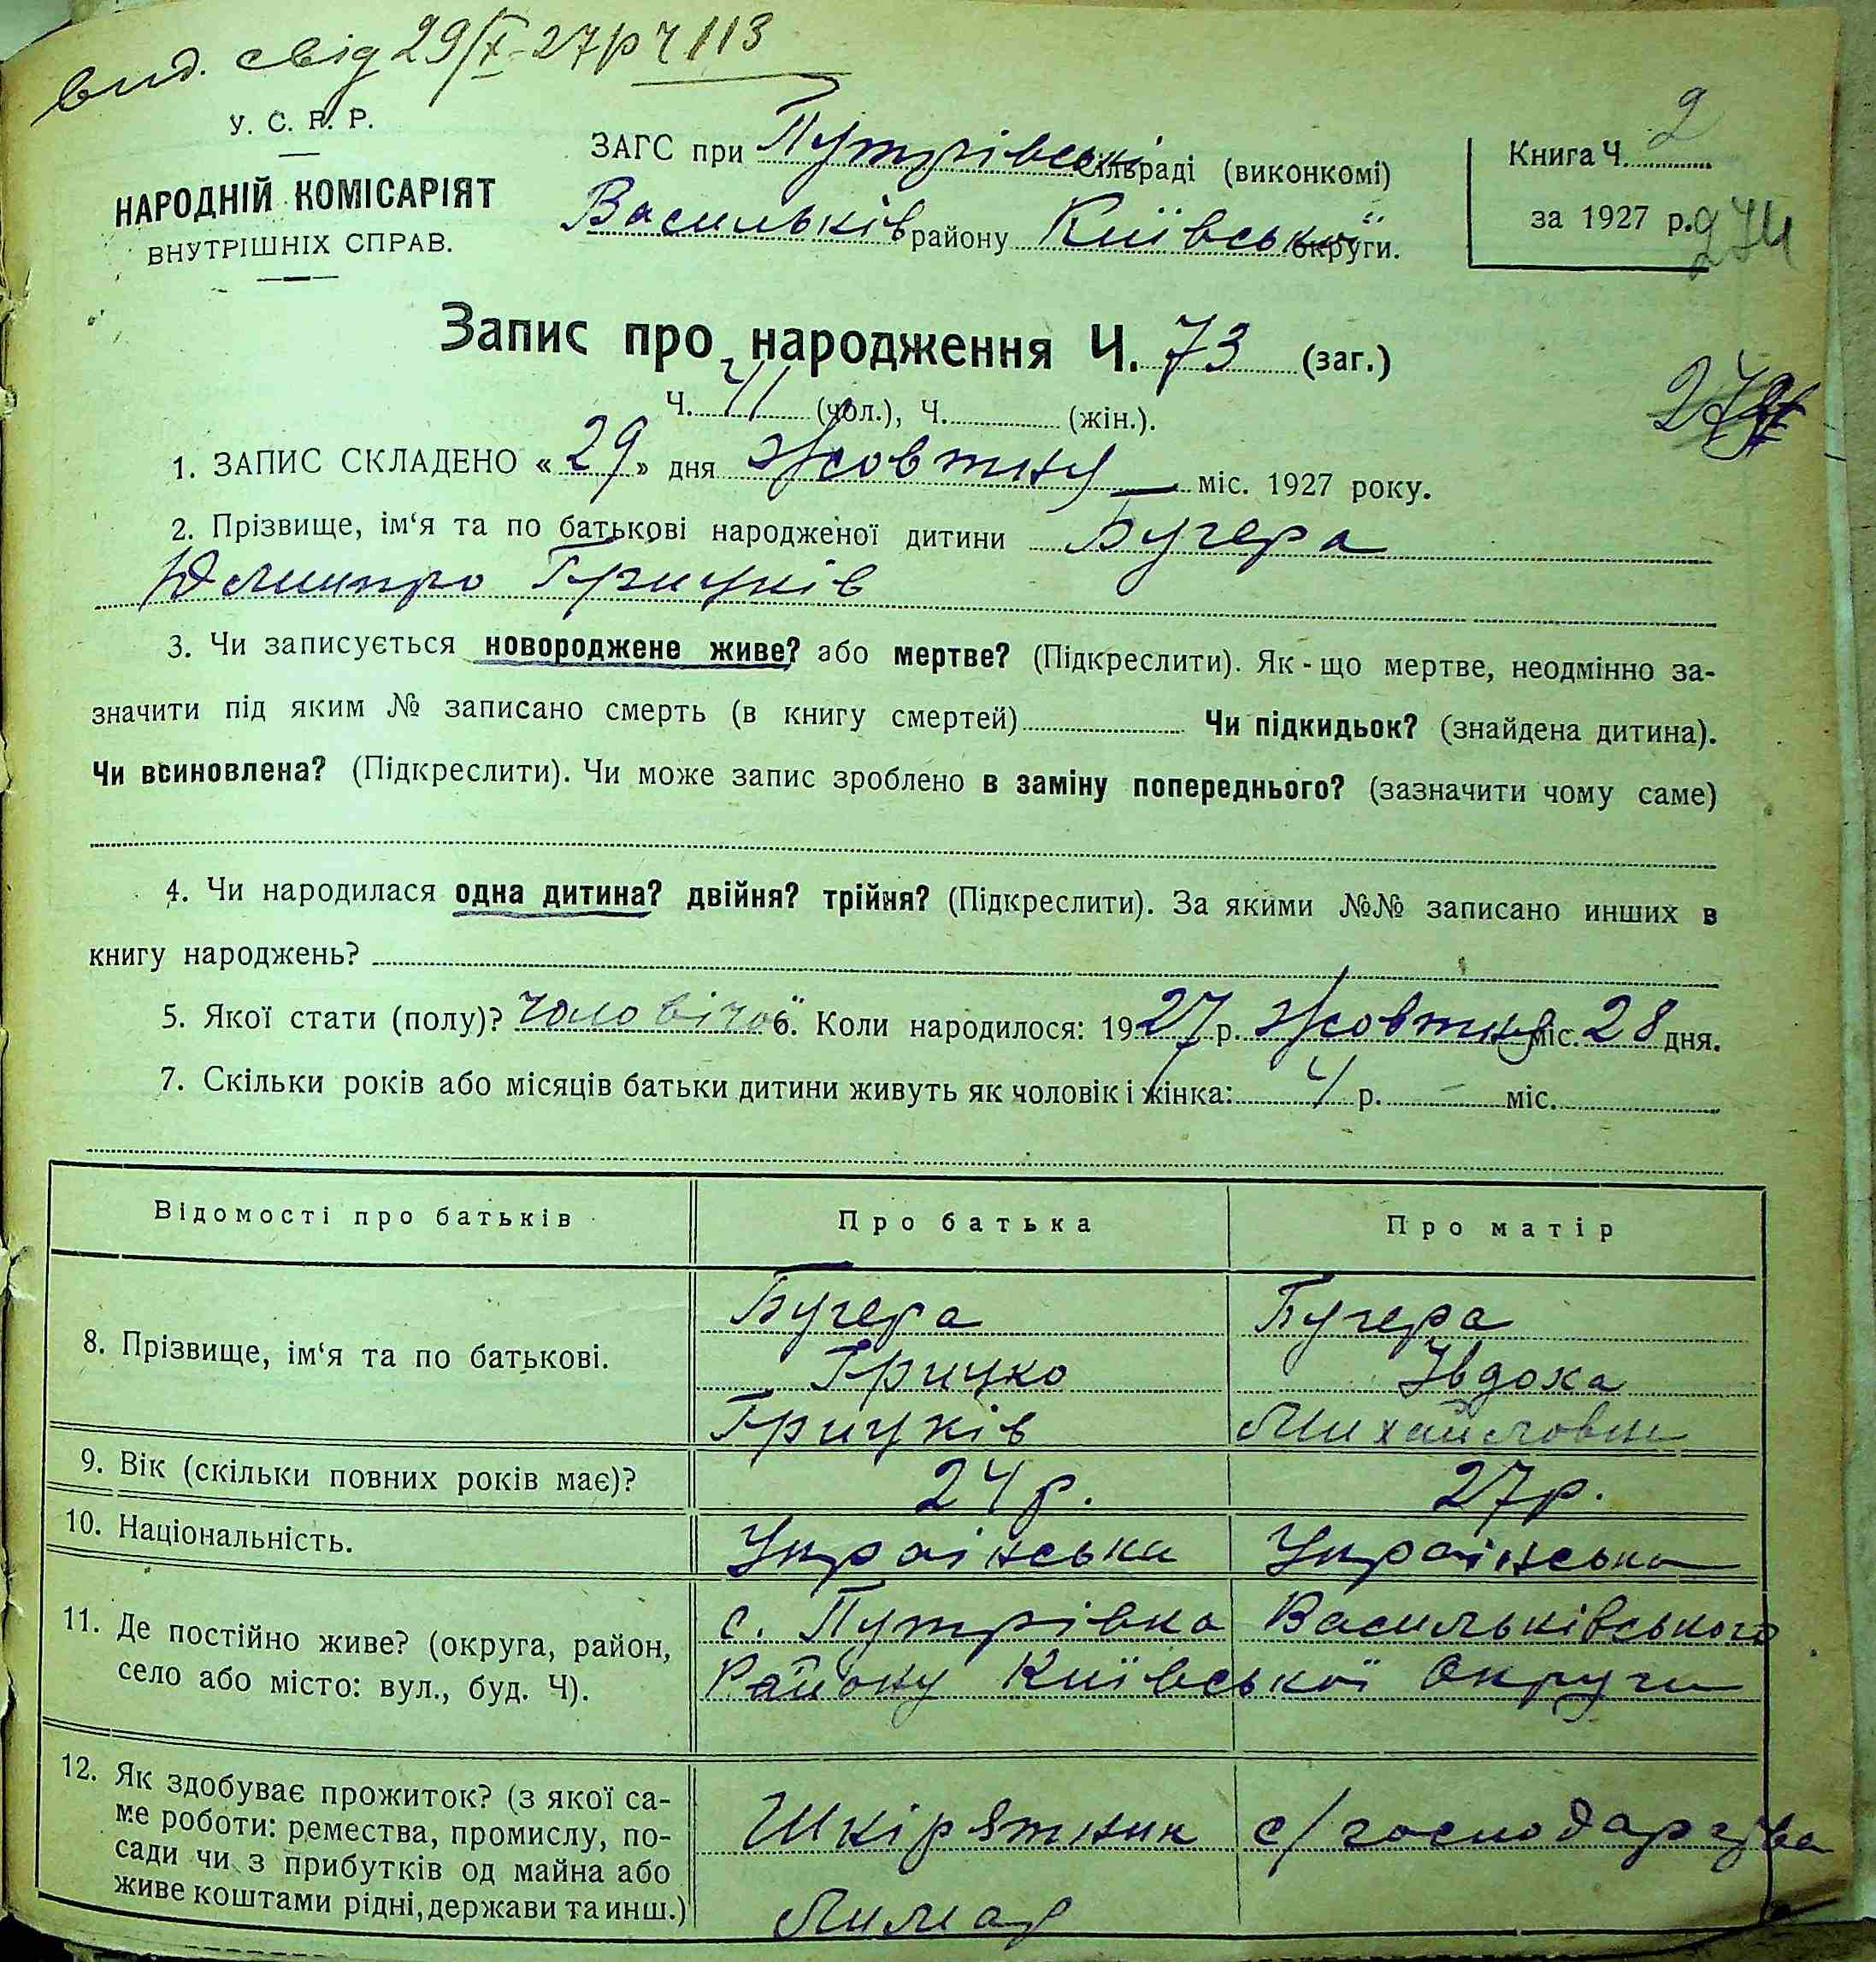 вид. свід 29/X-27р Ч 113
У. С. Р. Р.
НАРОДНІЙ КОМІСАРІЯТ
ВНУТРІШНІХ СПРАВ.
ЗАГС при Путрівські сільраді (виконкомі)
Васильків району Київської округи.
Книга Ч. 2
за 1927 р.
274
Запис про народження Ч. 73 (заг.)
Ч. 41 (чол.), Ч. (жін.).
1. ЗАПИС СКЛАДЕНО « 29 » дня Жовтня міс. 1927 року.
2. Прізвище, ім‘я та по батькові народженої дитини Бугера
Дмитро Грицків
3. Чи записується новороджене живе? або мертве? (Підкреслити). Як-що мертве, неодмінно за-
значити під яким № записано смерть (в книгу смертей) Чи підкидьок? (знайдена дитина).
Чи всиновлена? (Підкреслити). Чи може запис зроблено в заміну попереднього? (зазначити чому саме)
4. Чи народилася одна дитина? двійня? трійня? (Підкреслити). За якими №№ записано инших в
книгу народжень?
5. Якої стати (полу)? чоловічої 6. Коли народилося: 1927 р. Жовтня міс. 28 дня.
7. Скільки років або місяців батьки дитини живуть як чоловік і жінка: 4 р. – міс.
Відомості про батьків Про батька Про матір
8. Прізвище, ім‘я та по батькові.
Бугера
Грицко
Грицків
Бугера
Івдоха
Михайловна
9. Вік (скільки повних років має)? 24 р. 27 р.
10. Національність. Українська Українська
11. Де постійно живе? (округа, район,
село або місто: вул., буд. Ч).
с. Путрівка Васильківського
Району Київської Округи
12. Як здобуває прожиток? (з якої са-
ме роботи: ремества, промислу, по-
сади чи з прибутків од майна або
живе коштами рідні, держави та инш.)
Шкірятник
Лимар
с/господарства